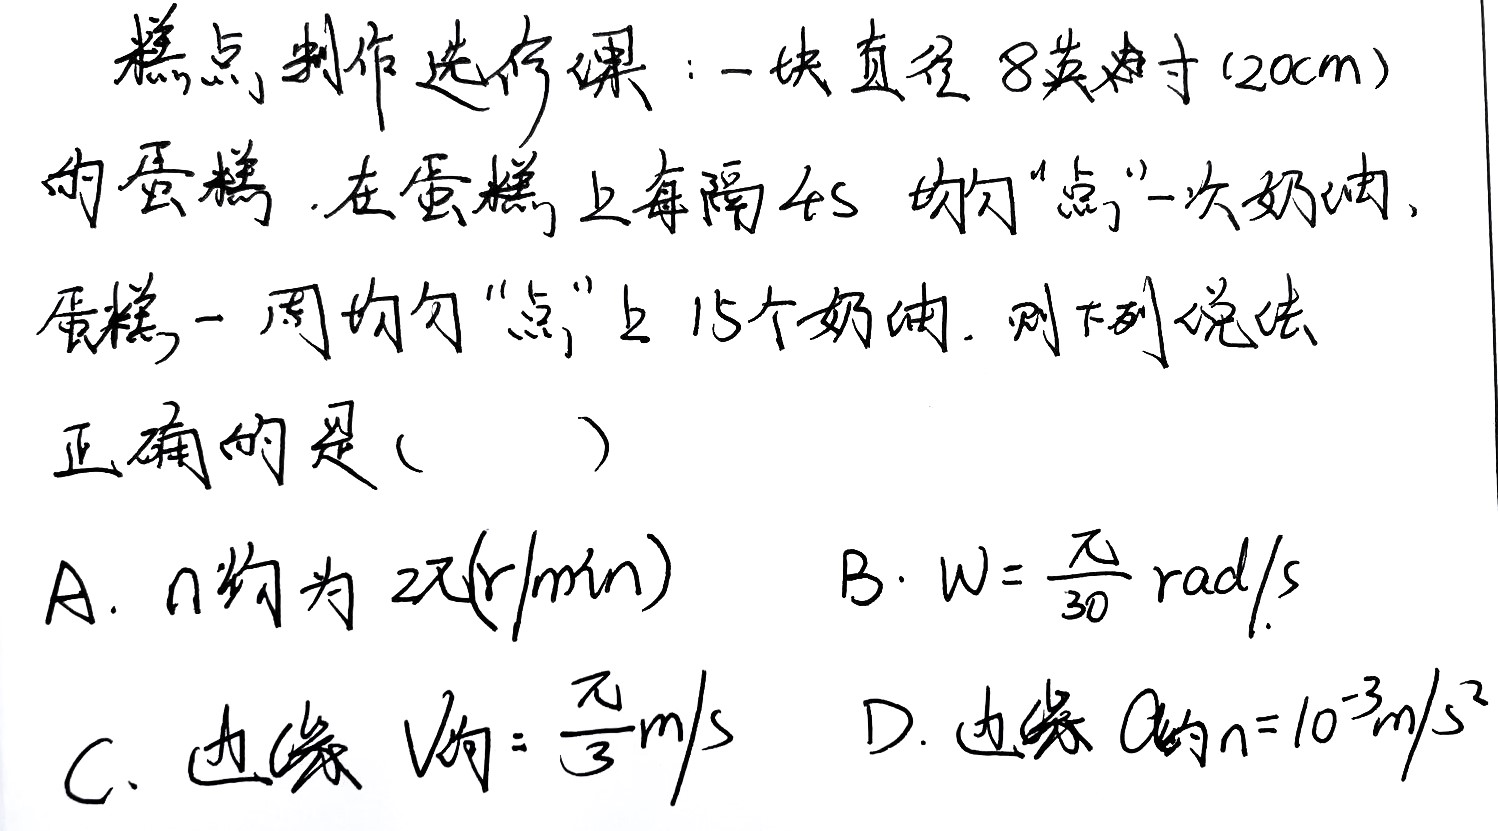 糕点制作选修课：一块直径 8英寸(20cm)
的蛋糕.在蛋糕上每隔4s 均匀“点”一次奶油、
蛋糕一周均匀“点”上 15个奶油. 则下列说法
正确的是( )
A. n约为 2π(r/min) B. W= π/30 rad/s
C. 边缘 V约= π/3 m/s D. 边缘 a约n=10⁻³m/s²